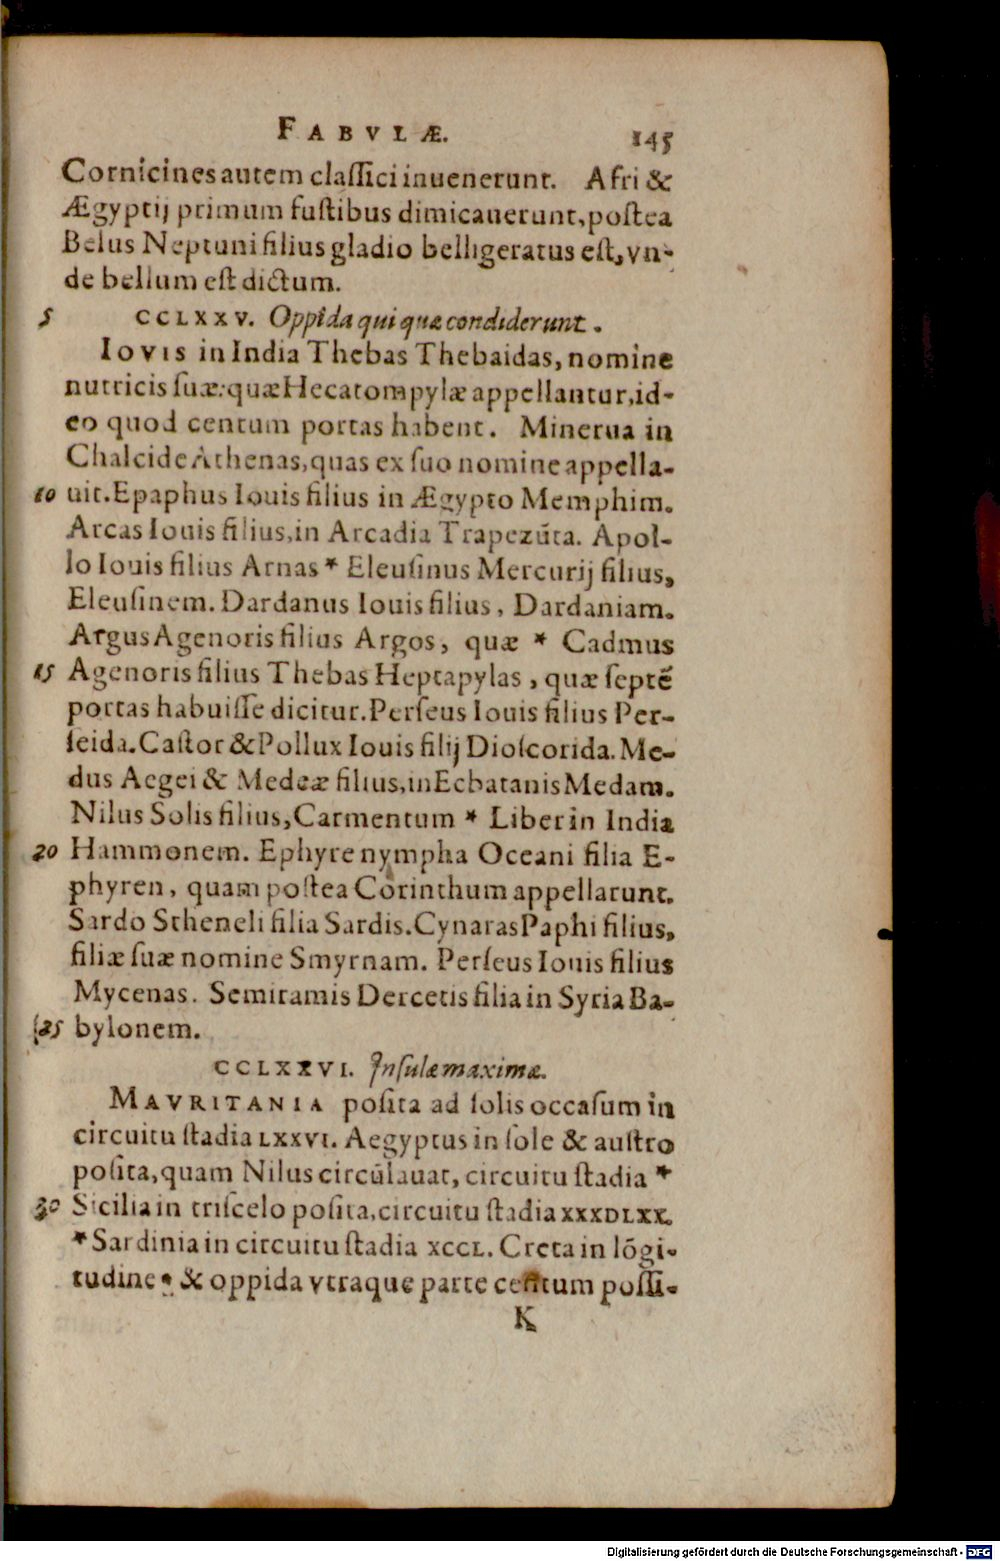 FABVLÆ. 145
Cornicines autem claſſici inuenerunt. Afri &
Ægyptij primum fuſtibus dimicauerunt, poſtea
Belus Neptuni filius gladio belligeratus eſt, vn-
de bellum eſt dictum.
5 CCLXXV. Oppida qui quæ condiderunt.
IOVIS in India Thebas Thebaidas, nomine
nutricis ſuæ: quæ Hecatompylæ appellantur, id-
eo quod centum portas habent. Minerua in
Chalcide Athenas, quas ex ſuo nomine appella-
10 uit. Epaphus Iouis filius in Ægypto Memphim.
Arcas Iouis filius, in Arcadia Trapezūta. Apol-
lo Iouis filius Arnas * Eleuſinus Mercurij filius,
Eleuſinem. Dardanus Iouis filius, Dardaniam.
Argus Agenoris filius Argos, quæ * Cadmus
15 Agenoris filius Thebas Heptapylas, quæ ſeptē
portas habuiſſe dicitur. Perſeus Iouis filius Per-
ſeida. Caſtor & Pollux Iouis filij Dioſcorida. Me-
dus Aegei & Medeæ filius, in Ecbatanis Medam.
Nilus Solis filius, Carmentum * Liber in India
20 Hammonem. Ephyre nympha Oceani filia E-
phyren, quam poſtea Corinthum appellarunt.
Sardo Stheneli filia Sardis. Cynaras Paphi filius,
filiæ ſuæ nomine Smyrnam. Perſeus Iouis filius
Mycenas. Semiramis Dercetis filia in Syria Ba-
25 bylonem.
CCLXXVI. Inſulæ maximæ.
MAVRITANIA poſita ad ſolis occaſum in
circuitu ſtadia LXXVI. Aegyptus in ſole & auſtro
poſita, quam Nilus circūlauat, circuitu ſtadia *
30 Sicilia in triſcelo poſita, circuitu ſtadia XXXDLXX.
* Sardinia in circuitu ſtadia XCCL. Creta in lōgi-
tudine * & oppida vtraque parte centum poſſi-
K
Digitalisierung gefördert durch die Deutsche Forschungsgemeinschaft - DFG